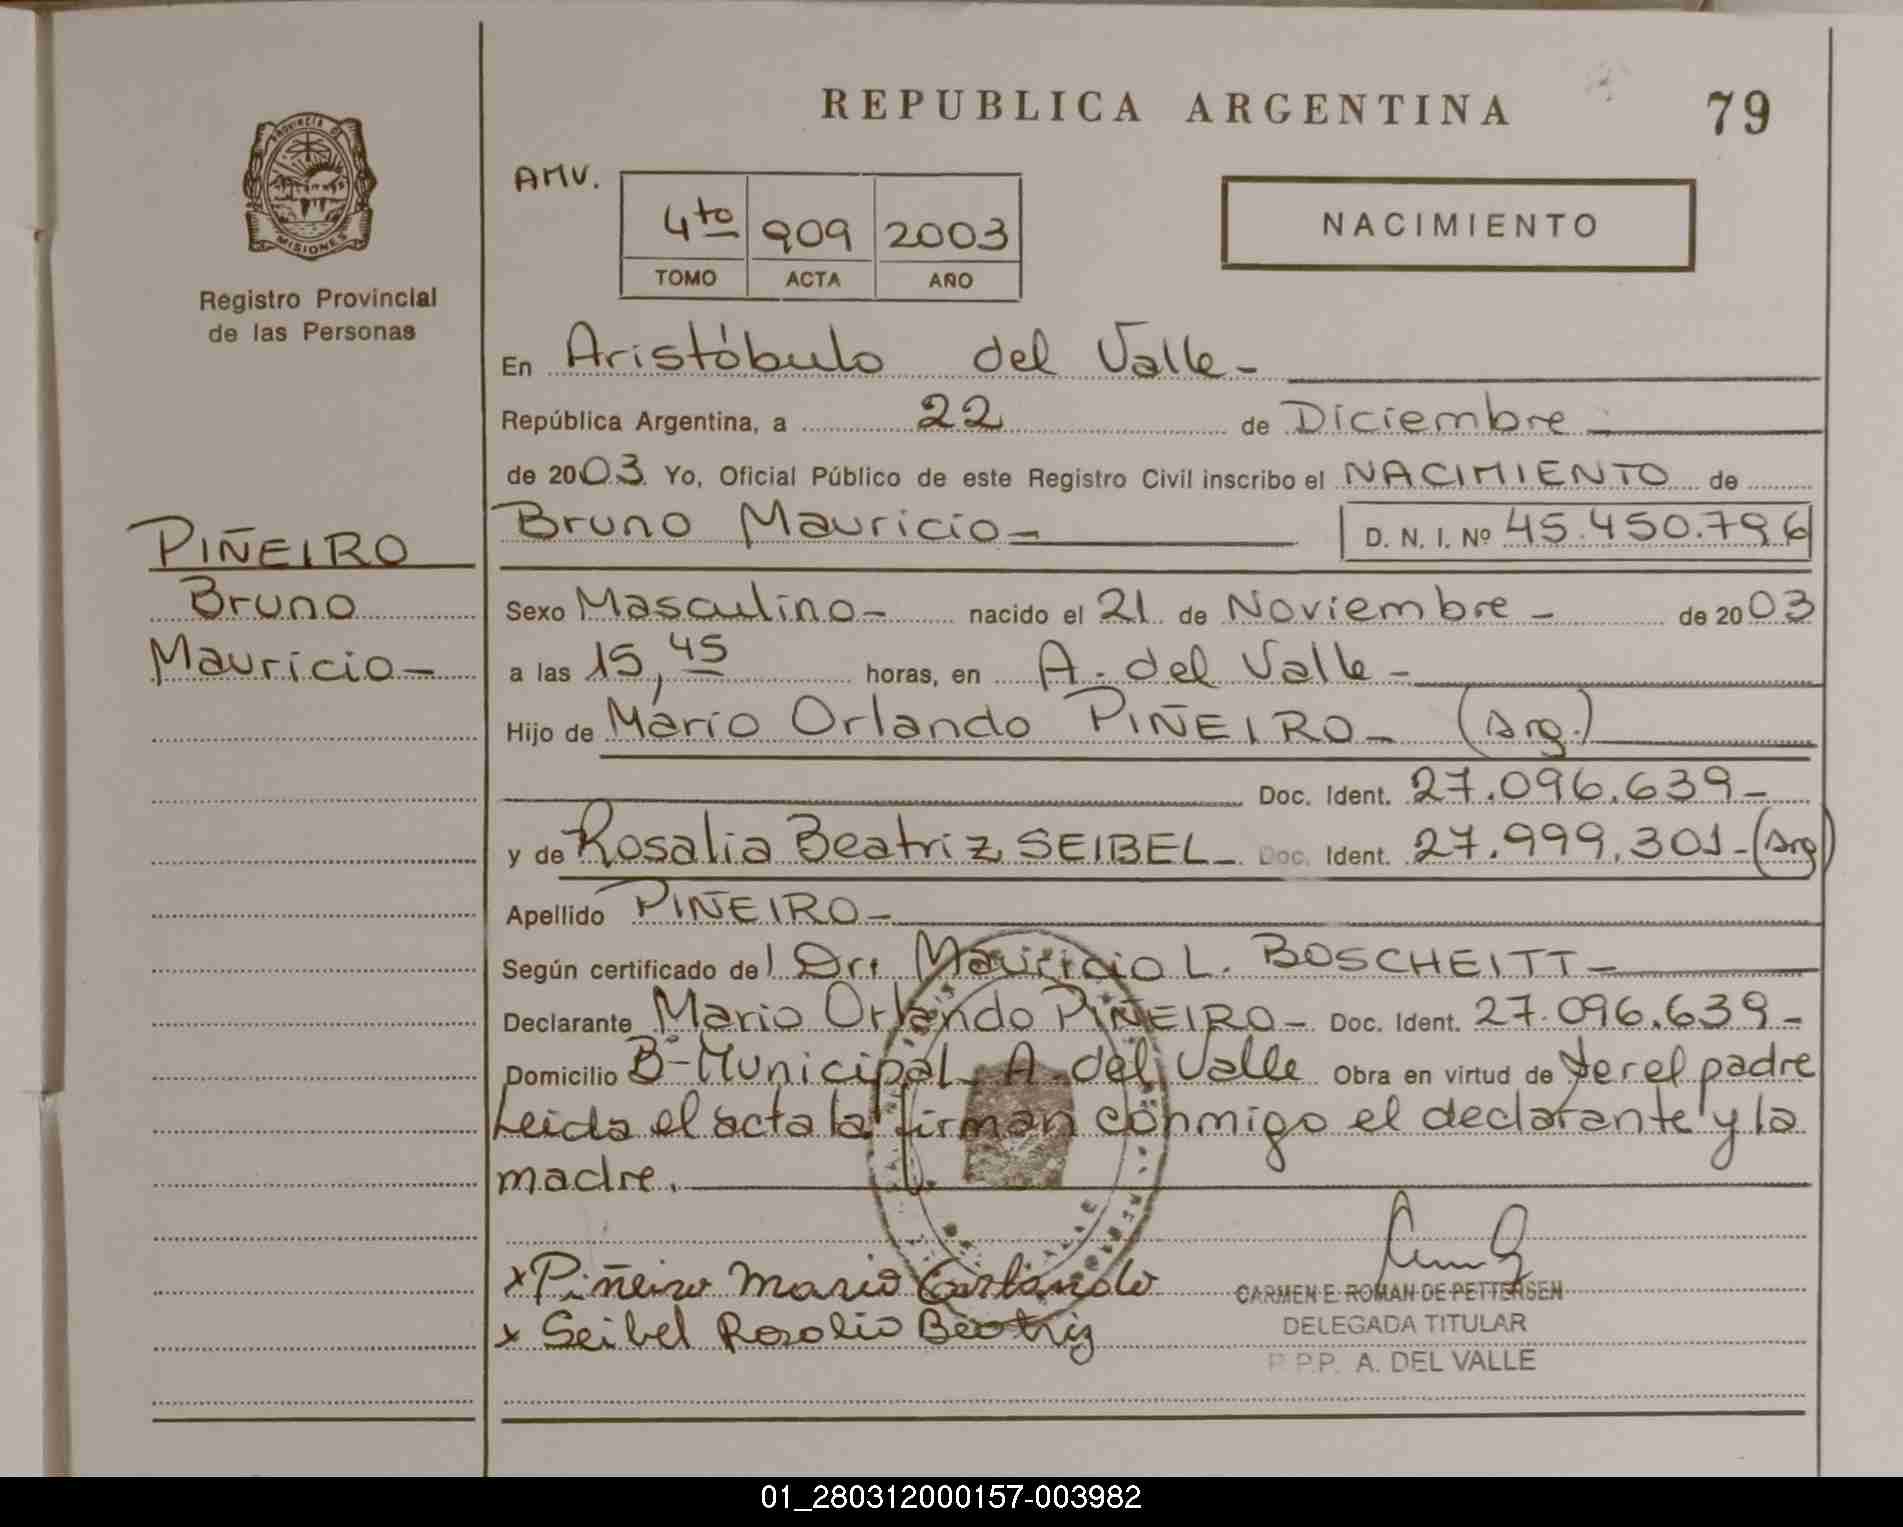 REPUBLICA ARGENTINA
79
PROVINCIA DE
MISIONES
Registro Provincial
de las Personas
AMV.
4to 909 2003
TOMO ACTA AÑO
NACIMIENTO
En Aristóbulo del Valle-
República Argentina, a 22 de Diciembre
de 2003 Yo, Oficial Público de este Registro Civil inscribo el NACIMIENTO de
Bruno Mauricio- D. N. I. Nº 45.450.796
PIÑEIRO
Bruno
Mauricio-
Sexo Masculino- nacido el 21 de Noviembre - de 2003
a las 15,45 horas, en A. del Valle-
Hijo de Mario Orlando PIÑEIRO- (Arg.)
Doc. Ident. 27.096.639-
y de Rosalia Beatriz SEIBEL- Doc. Ident. 27.999.301-(Arg)
Apellido PIÑEIRO-
Según certificado del Dr. Mauricio L. BOSCHEITT-
Declarante Mario Orlando PIÑEIRO- Doc. Ident. 27.096.639-
Domicilio Bº-Municipal A. del Valle Obra en virtud de ser el padre
Leida el acta la firman conmigo el declarante y la
madre.
x Piñeiro Mario Orlando
x Seibel Rosalia Beatriz
CARMEN E. ROMAN DE PETTERSEN
DELEGADA TITULAR
R.P.P. A. DEL VALLE
01_280312000157-003982